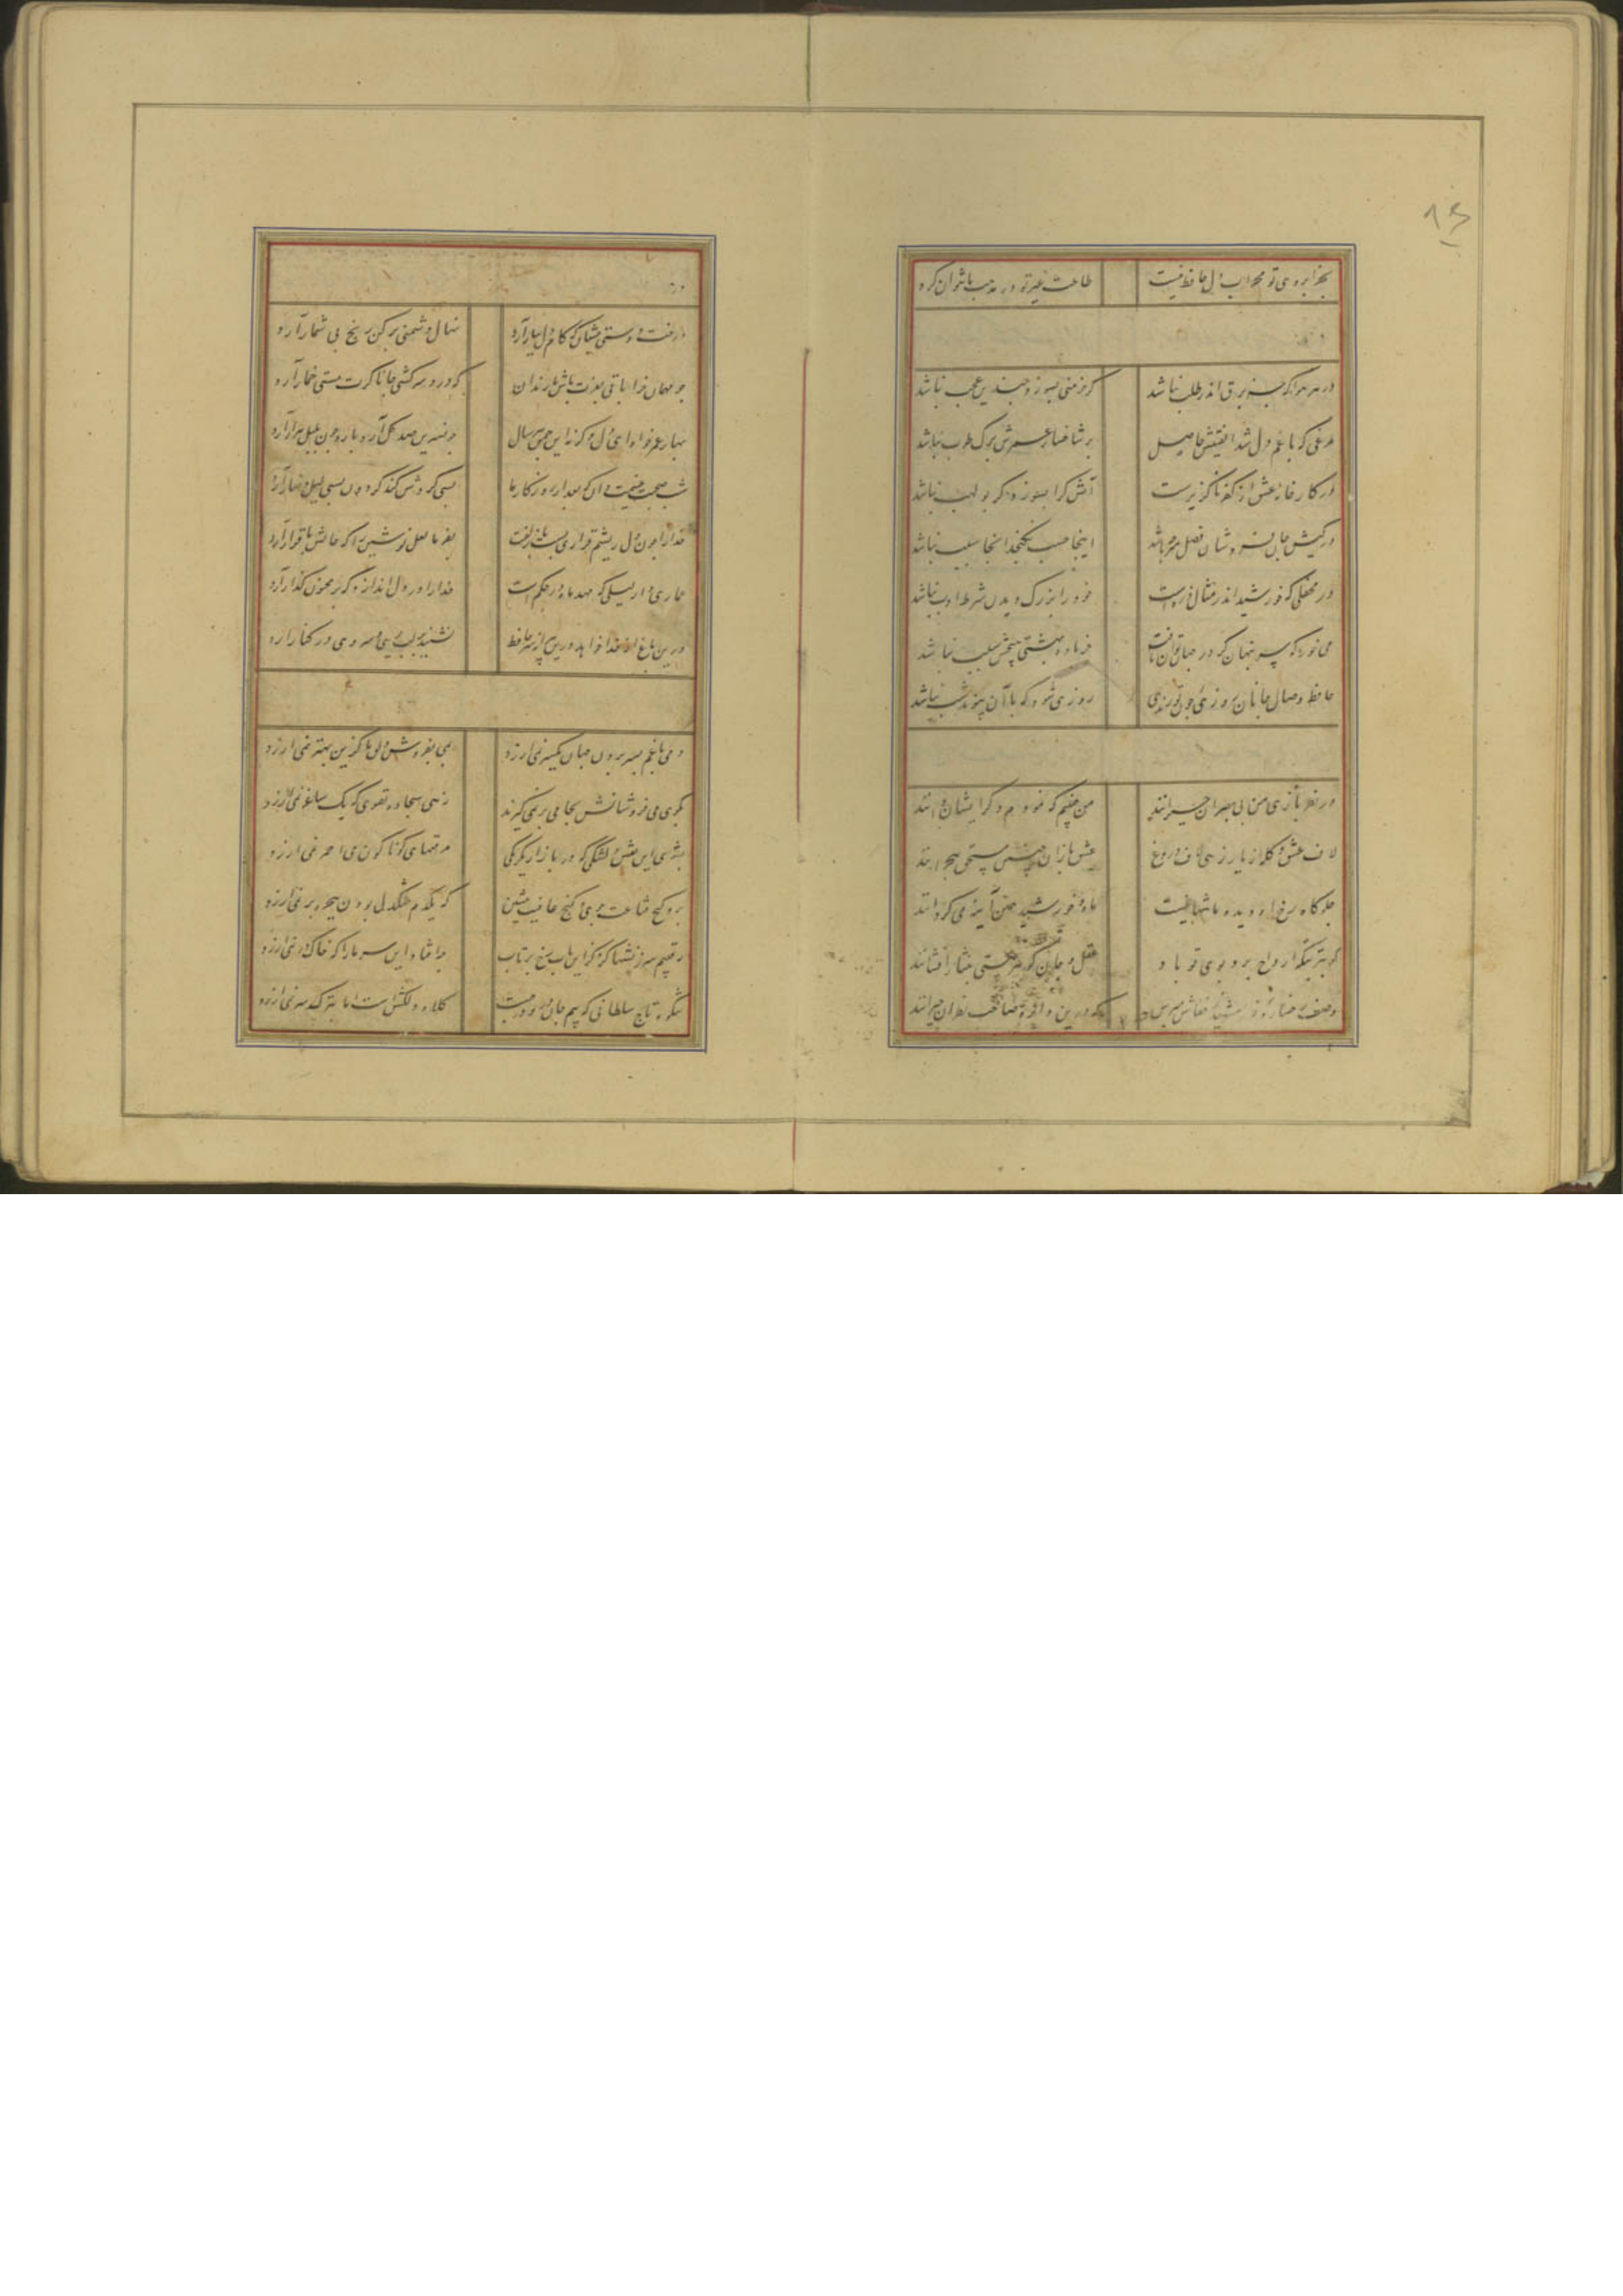 بجز ابروی تو محراب دل حافظ نیست طاعت غیر تو در مذهب ما نتوان کرد
در هر هوا که جز برق اندر طلب نباشد گر خرمنی بسوزد چندین عجب نباشد
مرغی که با غم دل شد الفتیش حاصل بر شاخسار عمرش برگ طرب نباشد
در کارخانه عشق از کفر ناگزیرست آتش کرا بسوزد گر بولهب نباشد
در کیش جان فروشان فضل و هنر نباشد اینجا حسب نگنجد اینجا نسب نباشد
در محفلی که خورشید اندر شمار ذره است خود را بزرگ دیدن شرط ادب نباشد
می خور که
حافظ وصال جانان روزی شود که با آن پیوند شب نباشد
در نظربازی من بی بصران حیرانند من چنینم که نمودم دگر ایشان دانند
لاف عشق و گله از یار زهی لاف دروغ عشق بازان چنین مستحق هجرانند
جلوه گاه رخ او دیده من تنها نیست ماه و خورشید همین آینه می گردانند
گر بنزهتگه ارواح برد بوی تو باد عقل و جان گوهر هستی بنثار افشانند
وصف رخساره خورشید ز خفاش مپرس که درین آینه صاحب نظران حیرانند
درخت دوستی بنشان که کام دل ببار آرد نهال دشمنی برکن که رنج بی شمار آرد
چو مهمان خراباتی بعزت باش با رندان که درد سر کشی جانا گرت مستی خمار آرد
بهار عمر خواه ای دل وگرنه این چمن هر سال چو نسرین صد گل آرد بار و چون بلبل هزار آرد
شب صحبت غنیمت دان که بعد از روزگار ما بسی گردش کند گردون بسی لیل و نهار آرد
خدا را چون دل ریشم قراری بست با زلفت بفرما لعل نوشین را که حالش با قرار آرد
عماری دار لیلی که مهد ماه در حکم است خدا را در دل اندازش که بر مجنون گذار آرد
درین باغ ار خدا خواهد در پیرانه سر حافظ نشیند بر لب جویی و سروی در کنار آرد
دمی با غم بسر بردن جهان یکسر نمی ارزد بمی بفروش دلق ما کزین بهتر نمی ارزد
بکوی می فروشانش بجامی بر نمی گیرند زهی سجاده تقوی که یک ساغر نمی ارزد
مرقعهای گوناگون می احمر نمی ارزد
برو گنج قناعت جوی و کنج عافیت بنشین که یکدم تنگدلی بودن ببحر و بر نمی ارزد
رقیبم سرزنشها کرد کز این باب رخ برتاب چه افتاد این سر ما را که خاک در نمی ارزد
شکوه تاج سلطانی که بیم جان درو درجست کلاه دلکش است اما بترک سر نمی ارزد